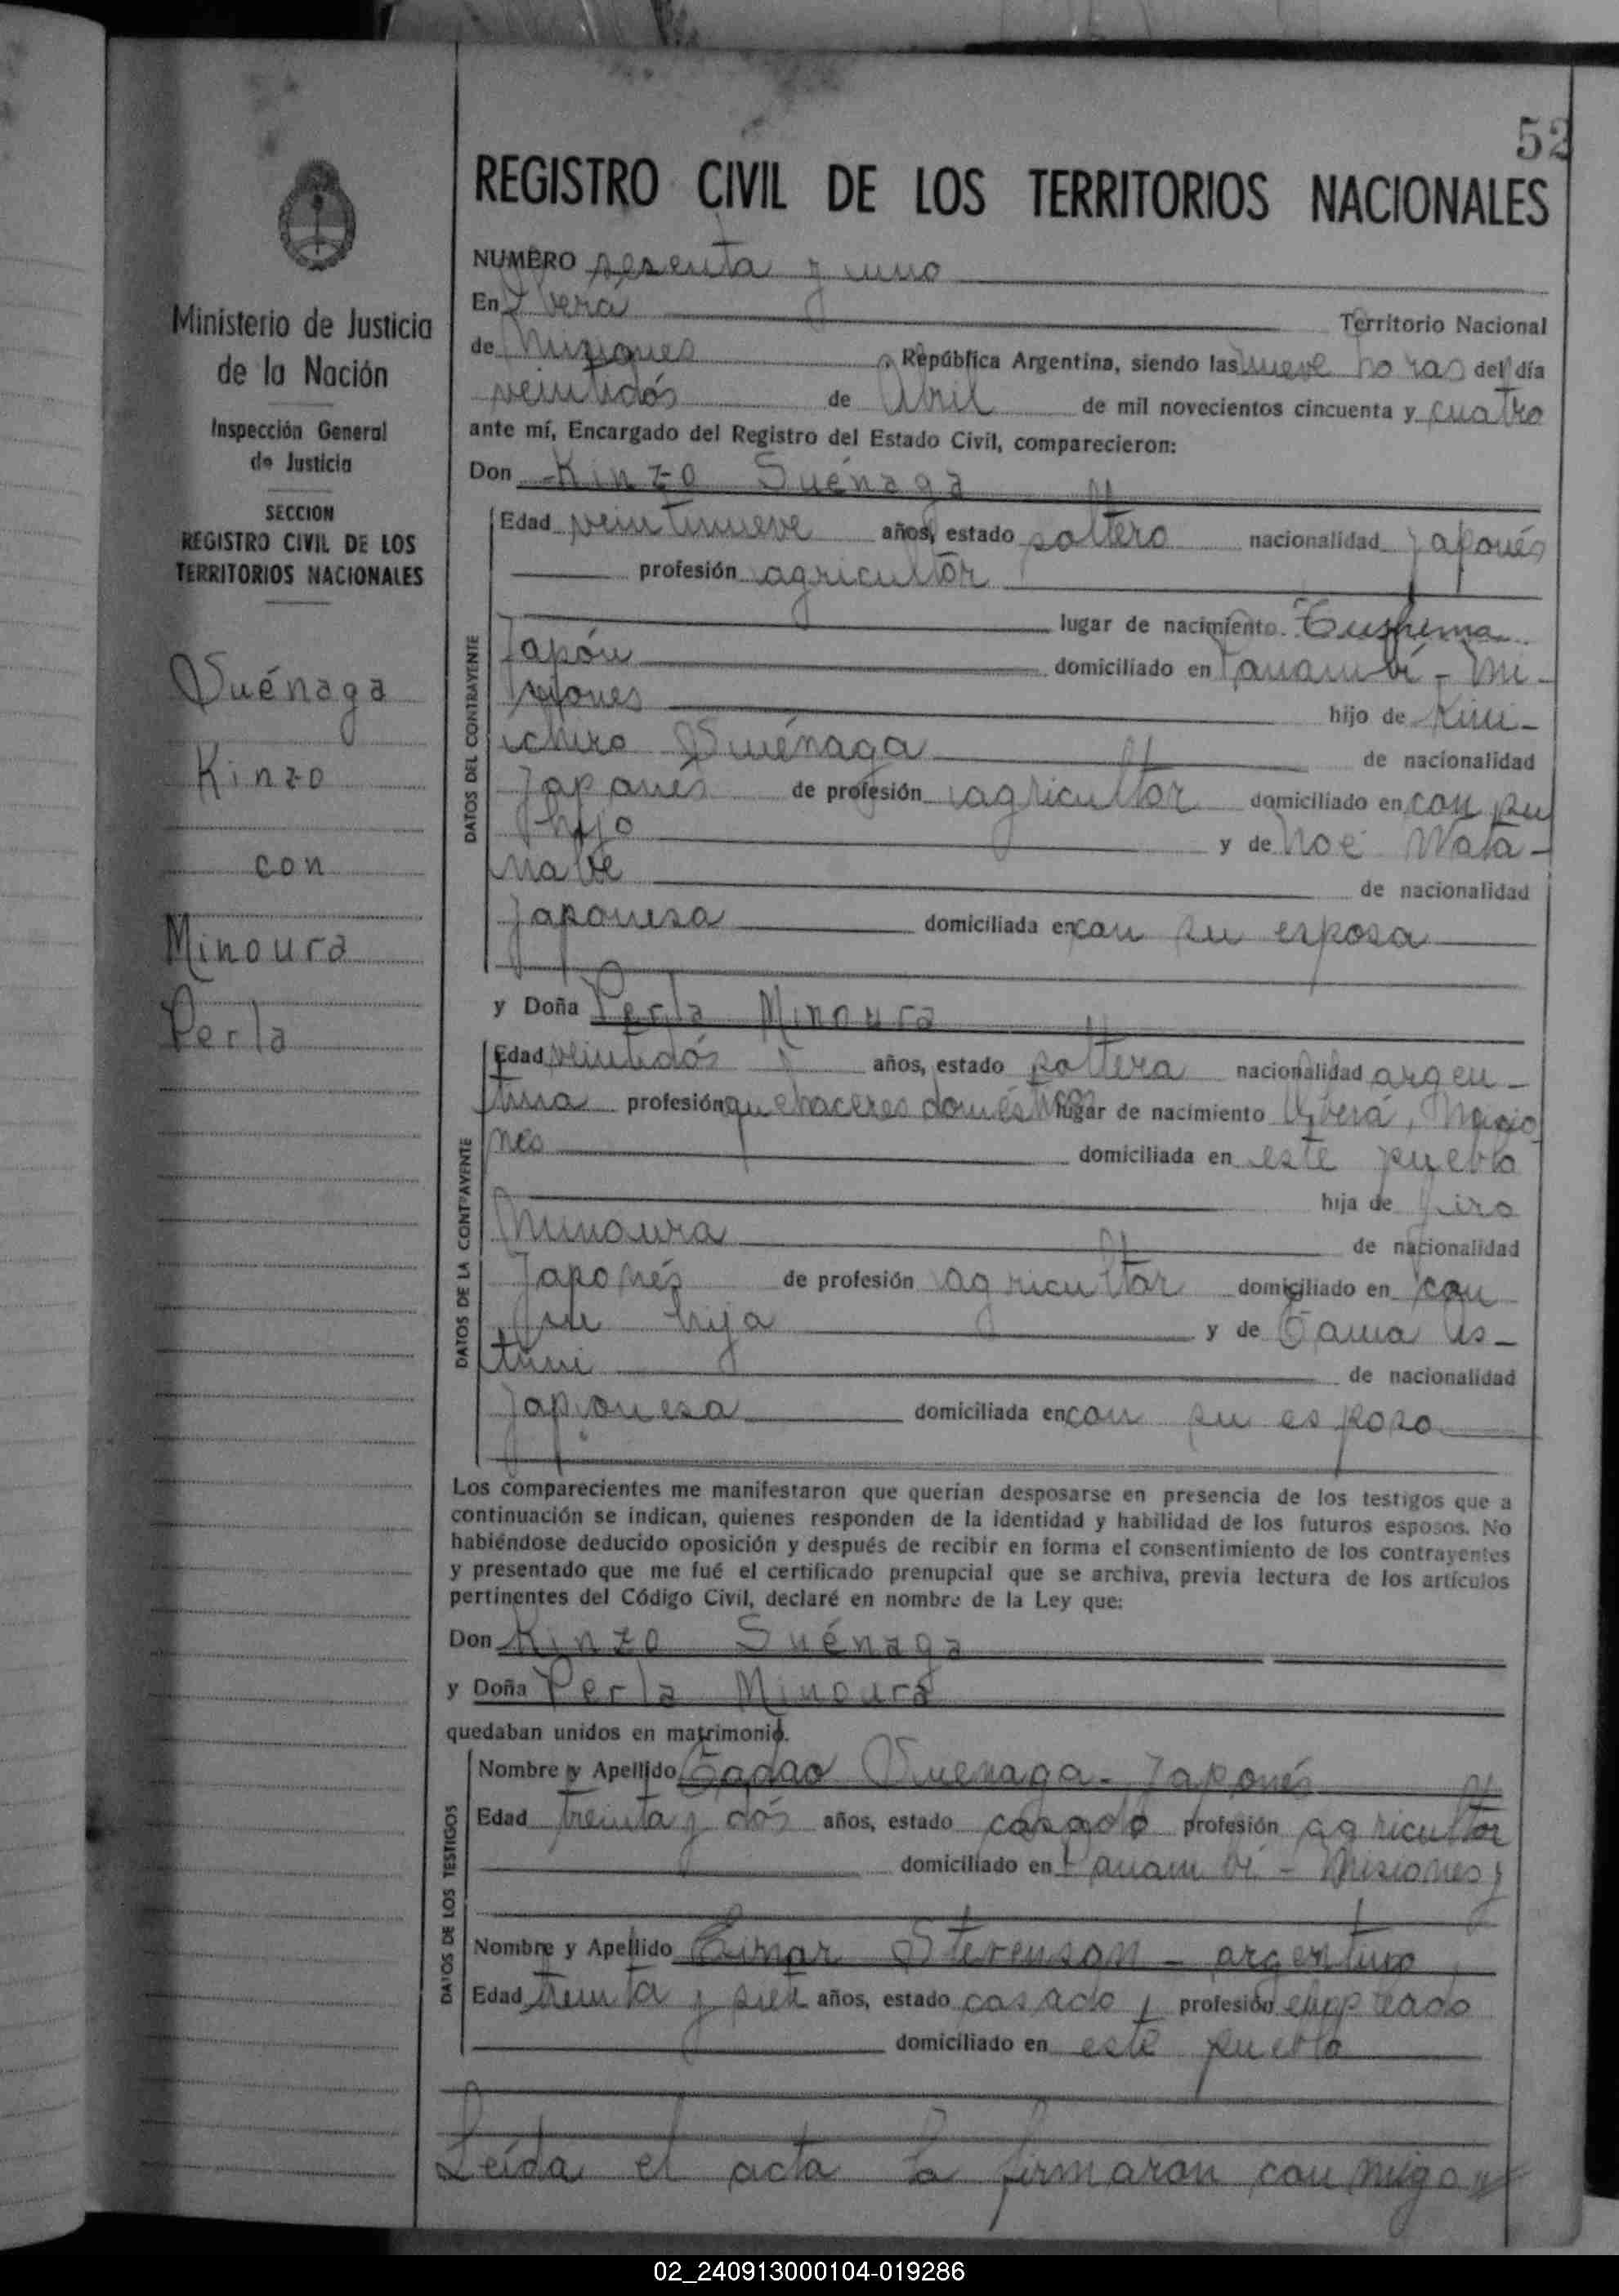 52
REGISTRO CIVIL DE LOS TERRITORIOS NACIONALES
Ministerio de Justicia
de la Nación
Inspección General
de Justicia
SECCION
REGISTRO CIVIL DE LOS
TERRITORIOS NACIONALES
Suénaga
Kinzo
con
Minoura
Perla
NUMERO sesenta y uno
En Oberá Territorio Nacional
de Misiones, República Argentina, siendo las nueve horas del día
veintidós de Abril de mil novecientos cincuenta y cuatro
ante mí, Encargado del Registro del Estado Civil, comparecieron:
Don Kinzo Suénaga
DATOS DEL CONTRAYENTE
Edad veintinueve años, estado soltero nacionalidad japonés
profesión agricultor
lugar de nacimiento
Japón domiciliado en Panambí - Mi-
siones hijo de Kini-
ichiro Suénaga de nacionalidad
Japonés de profesión agricultor domiciliado en con su
hijo y de Noe Wata-
nabe de nacionalidad
Japonesa domiciliada en con su esposo
y Doña Perla Minoura
DATOS DE LA CONTRAYENTE
Edad veintidós años, estado soltera nacionalidad argen-
tina profesión quehaceres domésticos lugar de nacimiento Oberá, Misio
nes domiciliada en este pueblo
hija de Jiro
Minoura de nacionalidad
Japonés de profesión agricultor domiciliado en con
su hija y de
de nacionalidad
Japonesa domiciliada en con su esposo
Los comparecientes me manifestaron que querían desposarse en presencia de los testigos que a
continuación se indican, quienes responden de la identidad y habilidad de los futuros esposos. No
habiéndose deducido oposición y después de recibir en forma el consentimiento de los contrayentes
y presentado que me fué el certificado prenupcial que se archiva, previa lectura de los artículos
pertinentes del Código Civil, declaré en nombre de la Ley que:
Don Kinzo Suénaga
y Doña Perla Minoura
quedaban unidos en matrimonio.
DATOS DE LOS TESTIGOS
Nombre y Apellido Tadao Suenaga - Japonés
Edad treinta y dós años, estado casado profesión agricultor
domiciliado en Panambí - Misiones y
Nombre y Apellido Einar Stevenson - argentino
Edad treinta y siete años, estado casado, profesión empleado
domiciliado en este pueblo
Leída el acta la firmaron conmigo
02_240913000104-019286